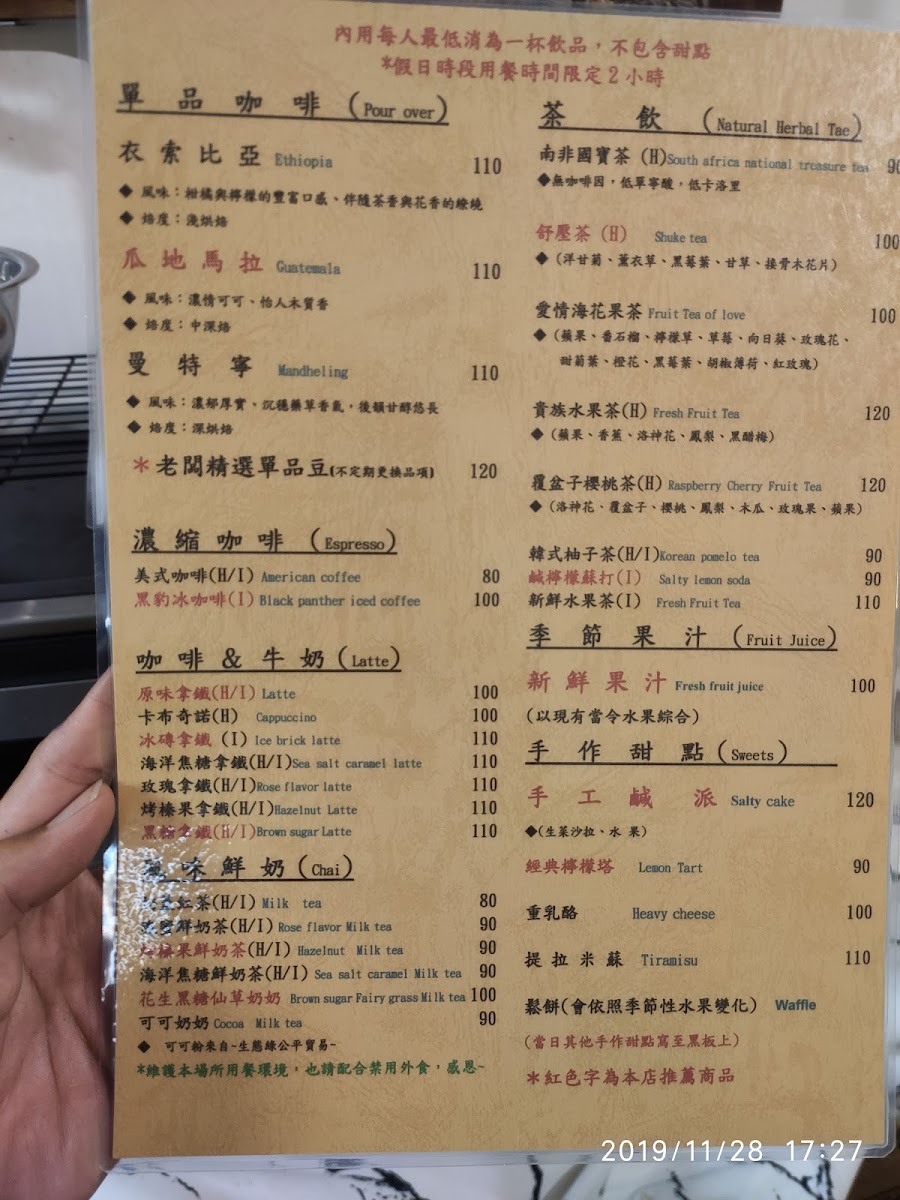 內用每人最低消為一杯飲品，不包含甜點
*假日時段用餐時間限定2小時
單品咖啡 (Pour over)
衣索比亞 Ethiopia 110
◆ 風味：柑橘與檸檬的豐富口感、伴隨茶香與花香的繚繞
◆ 焙度：淺烘焙
瓜地馬拉 Guatemala 110
◆ 風味：濃情可可、怡人木質香
◆ 焙度：中深焙
曼特寧 Mandheling 110
◆ 風味：濃郁厚實、沉穩藥草香氣，後韻甘醇悠長
◆ 焙度：深烘焙
*老闆精選單品豆(不定期更換品項) 120
濃縮咖啡 (Espresso)
美式咖啡(H/I) American coffee 80
黑豹冰咖啡(I) Black panther iced coffee 100
咖啡&牛奶(Latte)
原味拿鐵(H/I) Latte 100
卡布奇諾(H) Cappuccino 100
冰磚拿鐵 (I) Ice brick latte 110
海洋焦糖拿鐵(H/I)Sea salt caramel latte 110
玫瑰拿鐵(H/I)Rose flavor latte 110
烤榛果拿鐵(H/I)Hazelnut Latte 110
黑糖拿鐵(H/I)Brown sugar Latte 110
味鮮奶(Chai)
紅茶(H/I) Milk tea 80
鮮奶茶(H/I) Rose flavor Milk tea 90
榛果鮮奶茶(H/I) Hazelnut Milk tea 90
海洋焦糖鮮奶茶(H/I) Sea salt caramel Milk tea 90
花生黑糖仙草奶奶 Brown sugar Fairy grass Milk tea 100
可可奶奶 Cocoa Milk tea 90
◆ 可可粉來自~生態綠公平貿易~
*維護本場所用餐環境，也請配合禁用外食，感恩~
茶飲 (Natural Herbal Tae)
南非國寶茶 (H)South africa national treasure tea 90
◆無咖啡因，低單寧酸，低卡洛里
舒壓茶 (H) Shuke tea 100
◆ (洋甘菊、薰衣草、黑莓葉、甘草、接骨木花片)
愛情海花果茶 Fruit Tea of love 100
◆ (蘋果、番石榴、檸檬草、草莓、向日葵、玫瑰花、
甜菊葉、橙花、黑莓葉、胡椒薄荷、紅玫瑰)
貴族水果茶(H) Fresh Fruit Tea 120
◆ (蘋果、香蕉、洛神花、鳳梨、黑醋梅)
覆盆子櫻桃茶(H) Raspberry Cherry Fruit Tea 120
◆ (洛神花、覆盆子、櫻桃、鳳梨、木瓜、玫瑰果、蘋果)
韓式柚子茶(H/I)Korean pomelo tea 90
鹹檸檬蘇打(I) Salty lemon soda 90
新鮮水果茶(I) Fresh Fruit Tea 110
季節果汁 (Fruit Juice)
新鮮果汁 Fresh fruit juice 100
(以現有當令水果綜合)
手作甜點 (Sweets)
手工鹹派 Salty cake 120
◆(生菜沙拉、水果)
經典檸檬塔 Lemon Tart 90
重乳酪 Heavy cheese 100
提拉米蘇 Tiramisu 110
鬆餅(會依照季節性水果變化) Waffle
(當日其他手作甜點寫至黑板上)
*紅色字為本店推薦商品
2019/11/28 17:27